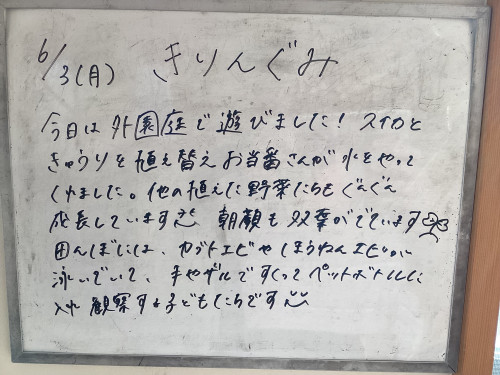 6/3(月) きりんぐみ
今日は外園庭で遊びました! スイカと
きゅうりを植え替えお当番さんが水をやって
くれました。他の植えた野菜たちもぐんぐん
成長しています 朝顔も双葉がでています
田んぼには、カブトエビやほうねんエビが
泳いでいて、手やザルですくってペットボトルに
入れ観察する子どもたちです